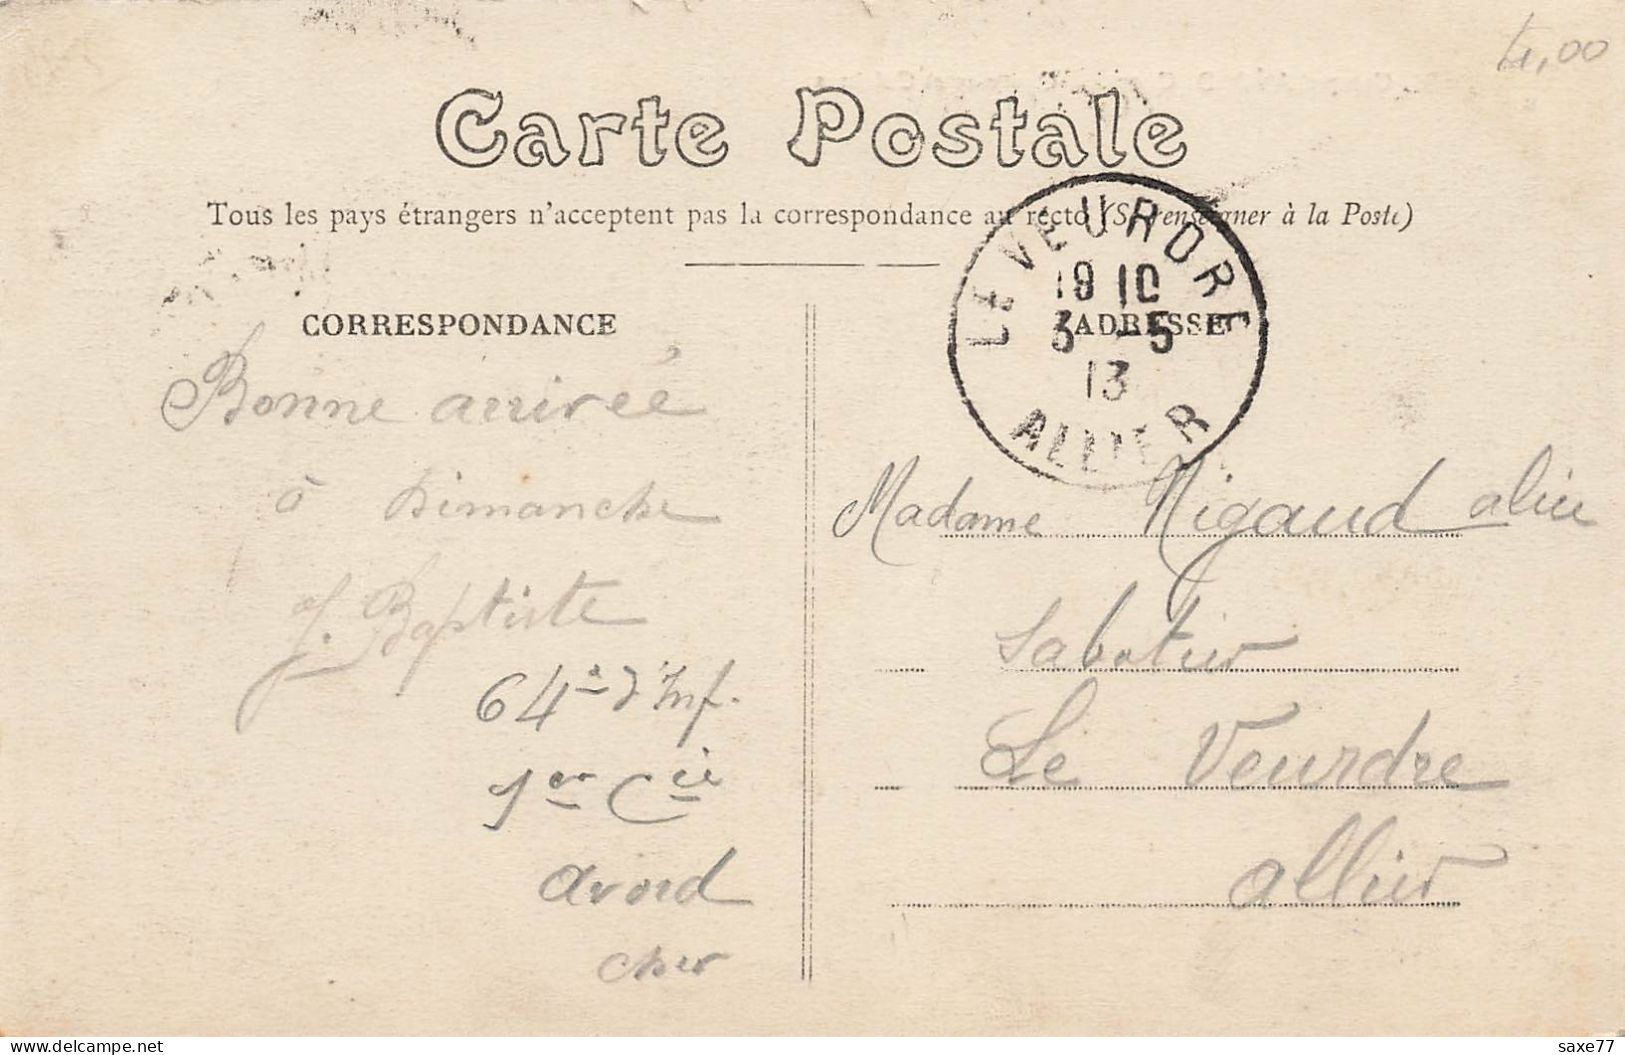 4,00
Carte Postale
Tous les pays étrangers n'acceptent pas la correspondance au recto (Se renseigner à la Poste)
LE VEURDRE
19 10
3 - 5
13
ALLIER
CORRESPONDANCE
Bonne arrivée
à Dimanche
J. Baptiste
64e d'Inf.
1er Cie
Avord
Cher
ADRESSE
Madame Nigaud aline
Sabotier
Le Veurdre
allier
delcampe.net
saxe77